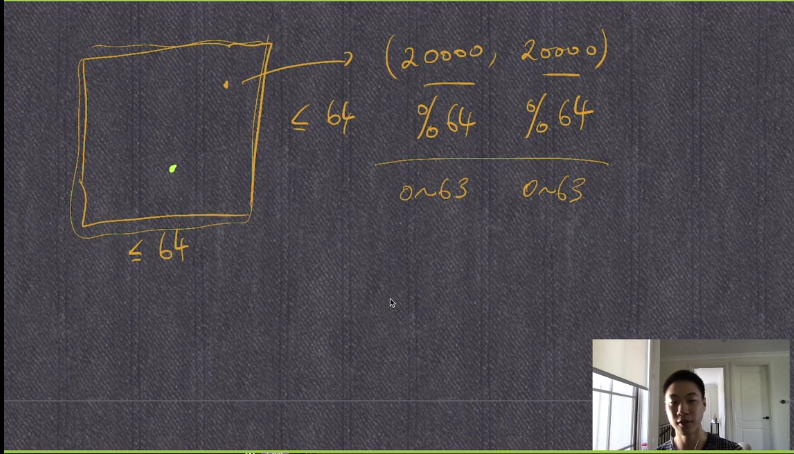 (20000, 20000)
≤ 64 %64 %64
0~63 0~63
≤ 64